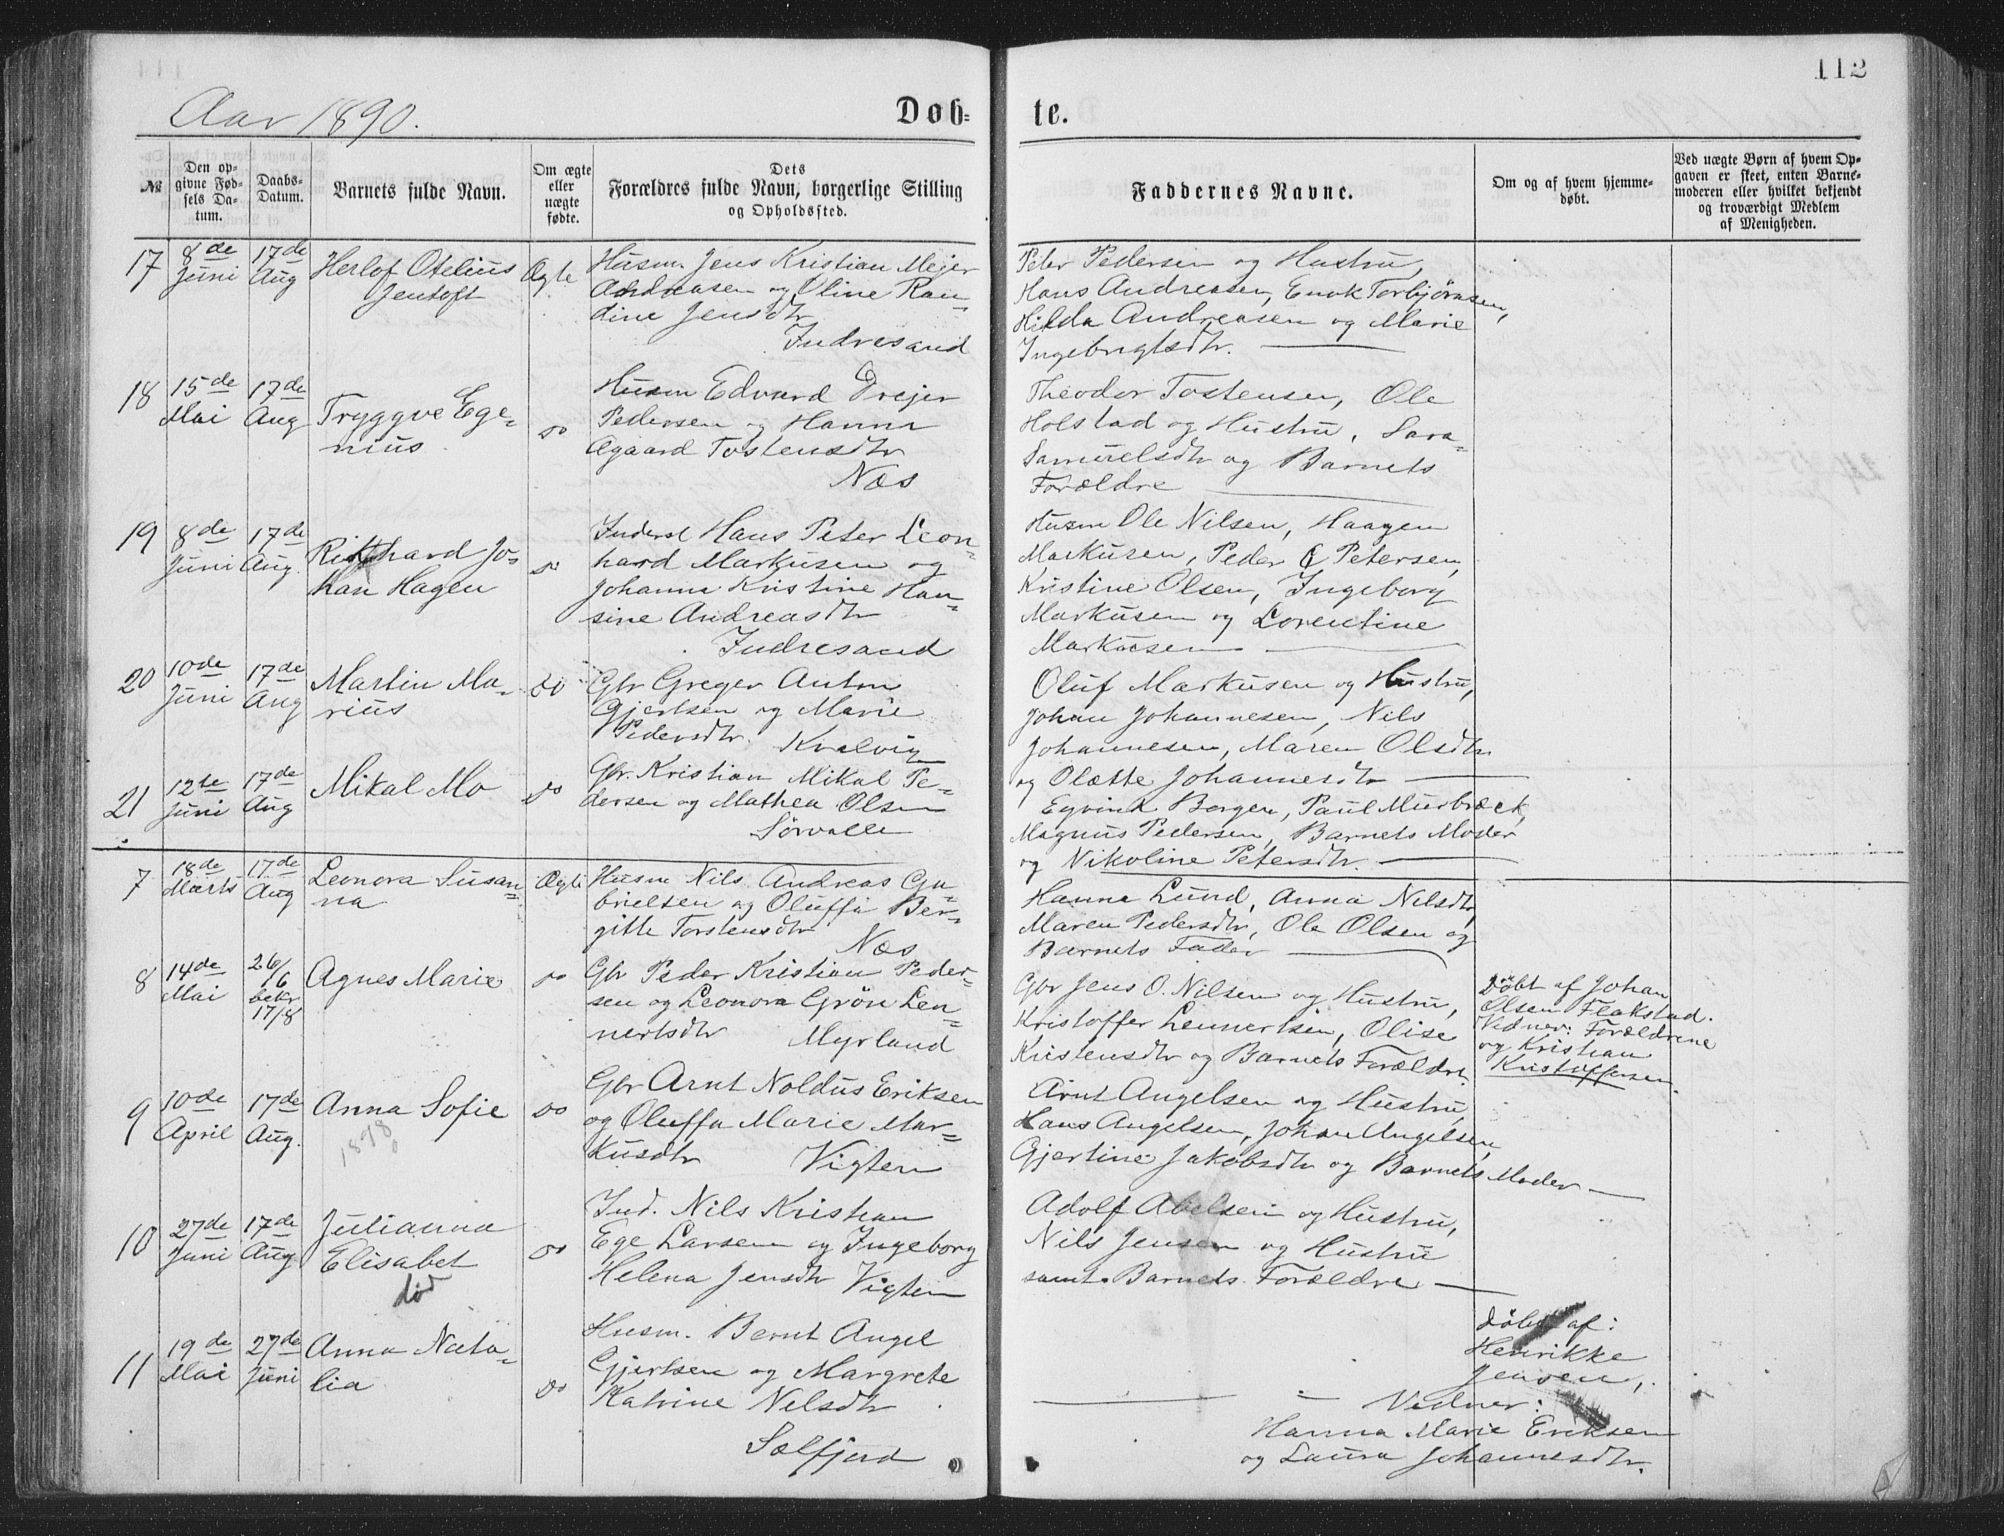 112
Aar 1890.
Døb-
te.
№
Den op-
givne Fød-
sels Da-
tum.
Daabs-
Datum.
Barnets fulde Navn.
Om ægte
eller
uægte
fødte.
Dets
Forældres fulde Navn, borgerlige Stilling
og Opholdssted.
Faddernes Navne.
Om og af hvem hjemme-
døbt.
Ved uægte Børn af hvem Op-
gaven er skeet, enten Barne-
moderen eller hvilket bekjendt
og troværdigt Medlem
af Menigheden.
17
8de
Juni
17de
Aug
Herlof Otelius
Jentoft
Ægte
Husm Jens Kristian Mejer
Andreasen og Oline Ran-
dine Jensdtr
Indresand
Peter Pedersen og Hustru,
Hans Andreasen, Enok Torbjørnsen,
Hilda Andreasen og Marie
Ingebrigtsdtr.
18
15de
Mai
17de
Aug
Tryggve Ege-
nius
do
Husm Edvard Drejer
Pedersen og Hanna
Ægaard Tostensdtr
Næs
Theodor Tostensen, Ole
Holstad og Hustru, Sara
Samuelsdtr og Barnets
Forældre
19
8de
Juni
17de
Aug.
Rikhard Jo-
han Hagen
do
Inderst Hans Peter Leon-
hard Markusen og
Johanna Kristine Han-
sine Andreasdtr
Indresand
Husm Ole Nilsen, Haagen
Markusen, Peder Petersen,
Kristine Olsen, Ingeborg
Markusen og Lorentine
Markusen
20
10de
Juni
17de
Aug
Martin Ma-
rius
do
Gbr Greger Anton
Gjertsen og Marie
Pedersdtr. Kvalvig
Oluf Markusen og Hustru,
Johan Johannesen, Nils
Johannesen, Maren Olsdtr
og Olætte Johannesdtr
21
12te
Juni
17de
Aug
Mikal Mo
do
Gbr. Kristian Mikal Pe-
dersen og Mathea Olsen
Sørvalle
Eyvind Borgen, Paul Murbræck,
Magnus Pedersen, Barnets Moder
og Nikoline Petersdtr.
7
18de
Marts
17de
Aug
Leonora Susan-
na
Ægte
Husm Nils Andreas Ga-
brielsen og Oluffa Ber-
gitte Torstensdtr
Næs
Hanna Lund, Anna Nelsdtr,
Maren Pedersdtr, Ole Olsen og
Barnets Fader
8
14de
Mai
26/6
bekr
17/8
Agnes Marie
do
Gbr Peder Kristian Peder-
sen og Leonora Grøn Len-
nertsdtr Myrland
Gbr Jens O. Nilsen og Hustru,
Kristoffer Lennertsen, Olise
Kristensdtr og Barnets Forældre.
Døbt af Johan
Olsen Flakstad.
Vidner: Forældrene
og Kristian
Kristoffersen.
9
10de
April
17de
Aug.
Anna Sofie
1878
do
Gbr Arnt Noldus Eriksen
og Oluffa Marie Mar-
kusdtr Vigten
Arnt Angelsen og Hustru,
Hans Angelsen, Johan Angelsen,
Gjertine Jakobsdtr og Barnets Moder
10
27de
Juni
17de
Aug
Julianna
Elisabet
død
do
Ind. Nils Kristian
Ege Larsen og Ingeborg
Helena Jensdtr Vigten
Adolf Abelsen og Hustru,
Nils Jensen og Hustru
samt Barnets Forældre
11
19de
Mai
27de
Juni
Anna Nata-
lia
do
Husm. Bernt Angel
Gjertsen og Margrete
Katrine Nelsdtr
Sælfjord
Døbt af:
Henrikke
Jensen,
Vidner:
Hanna Marie Eriksen
og Laura Johannesdtr.